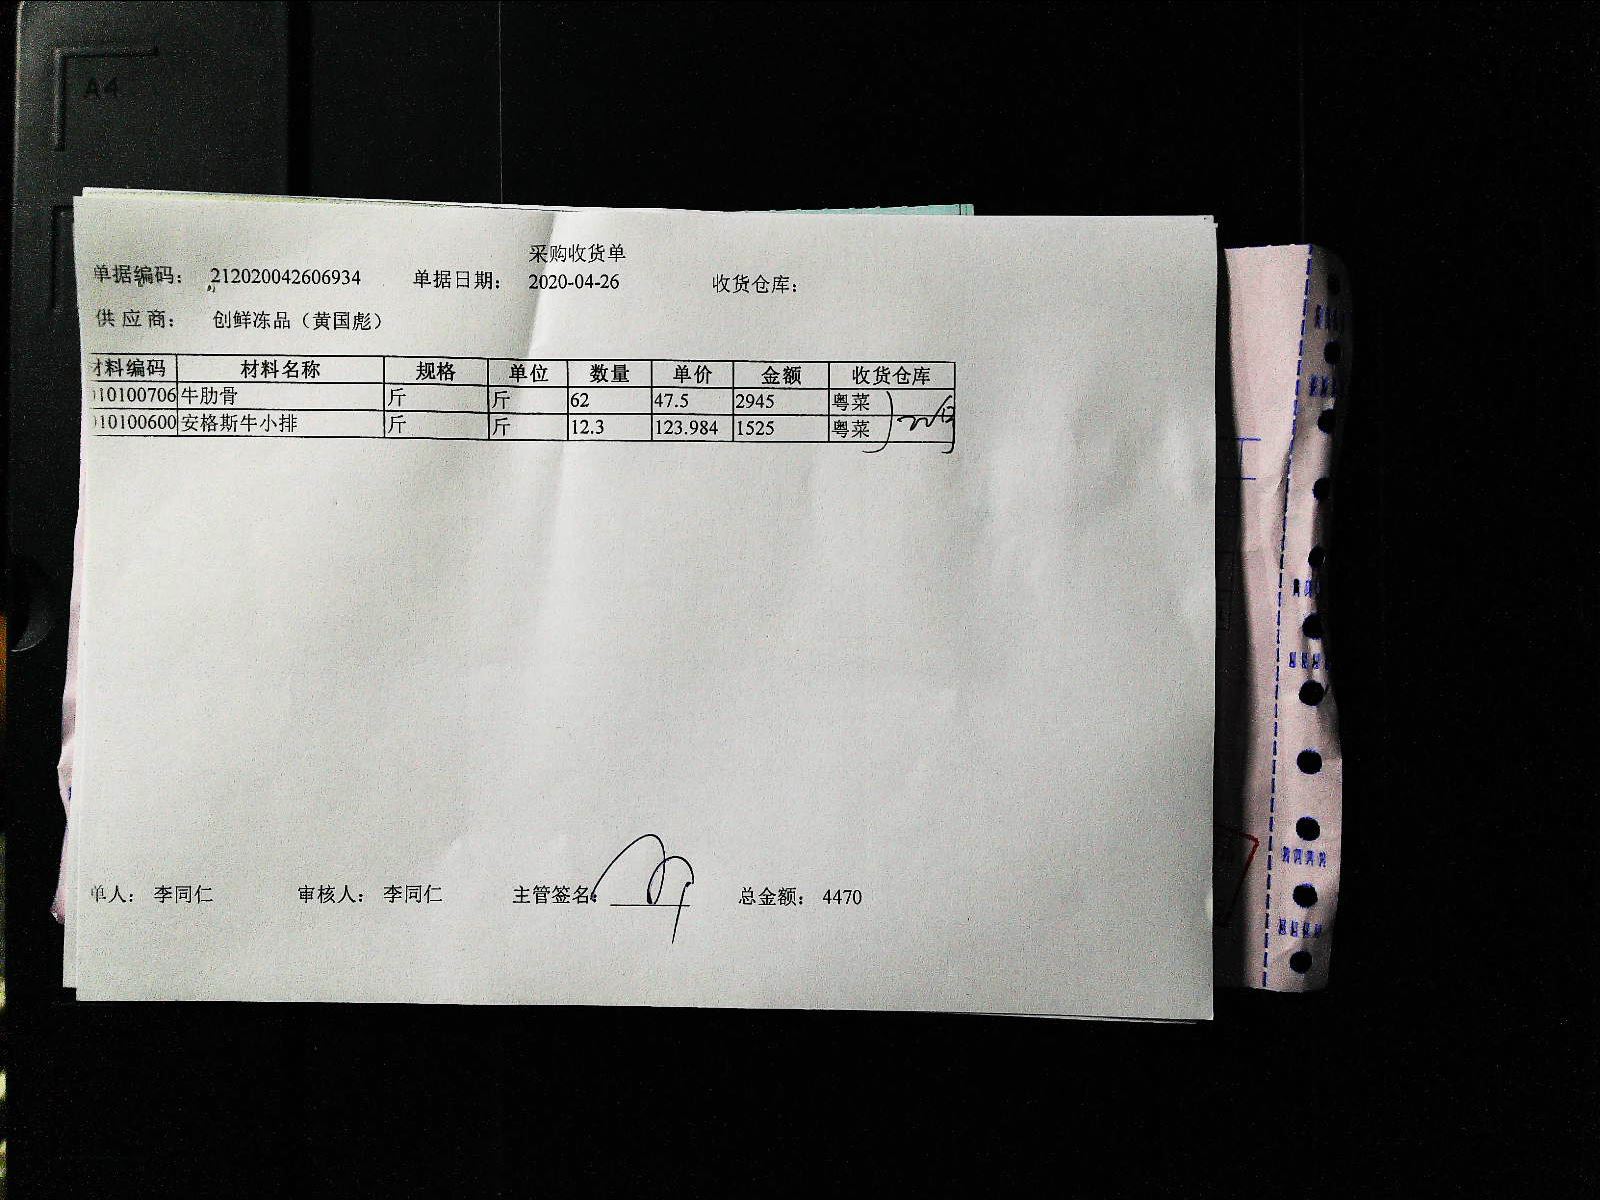 A4
采购收货单
单据编码： 212020042606934 单据日期： 2020-04-26 收货仓库：
供 应 商： 创鲜冻品（黄国彪）
材料编码 材料名称 规格 单位 数量 单价 金额 收货仓库
10100706 牛肋骨 斤 斤 62 47.5 2945 粤菜
10100600 安格斯牛小排 斤 斤 12.3 123.984 1525 粤菜
单人： 李同仁 审核人： 李同仁 主管签名： 总金额： 4470